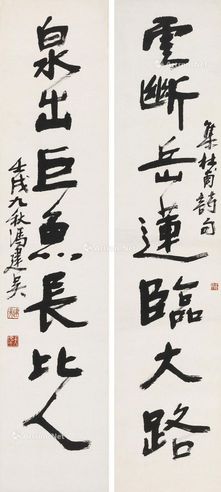 雲斷岳蓮臨大路
集杜甫詩句
泉出巨魚長比人
壬戌九秋馮建吴